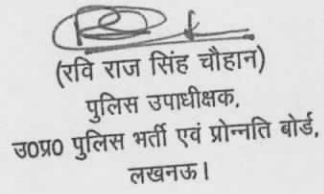 (रवि राज सिंह चौहान)
पुलिस उपाधीक्षक,
उ०प्र० पुलिस भर्ती एवं प्रोन्नति बोर्ड,
लखनऊ।